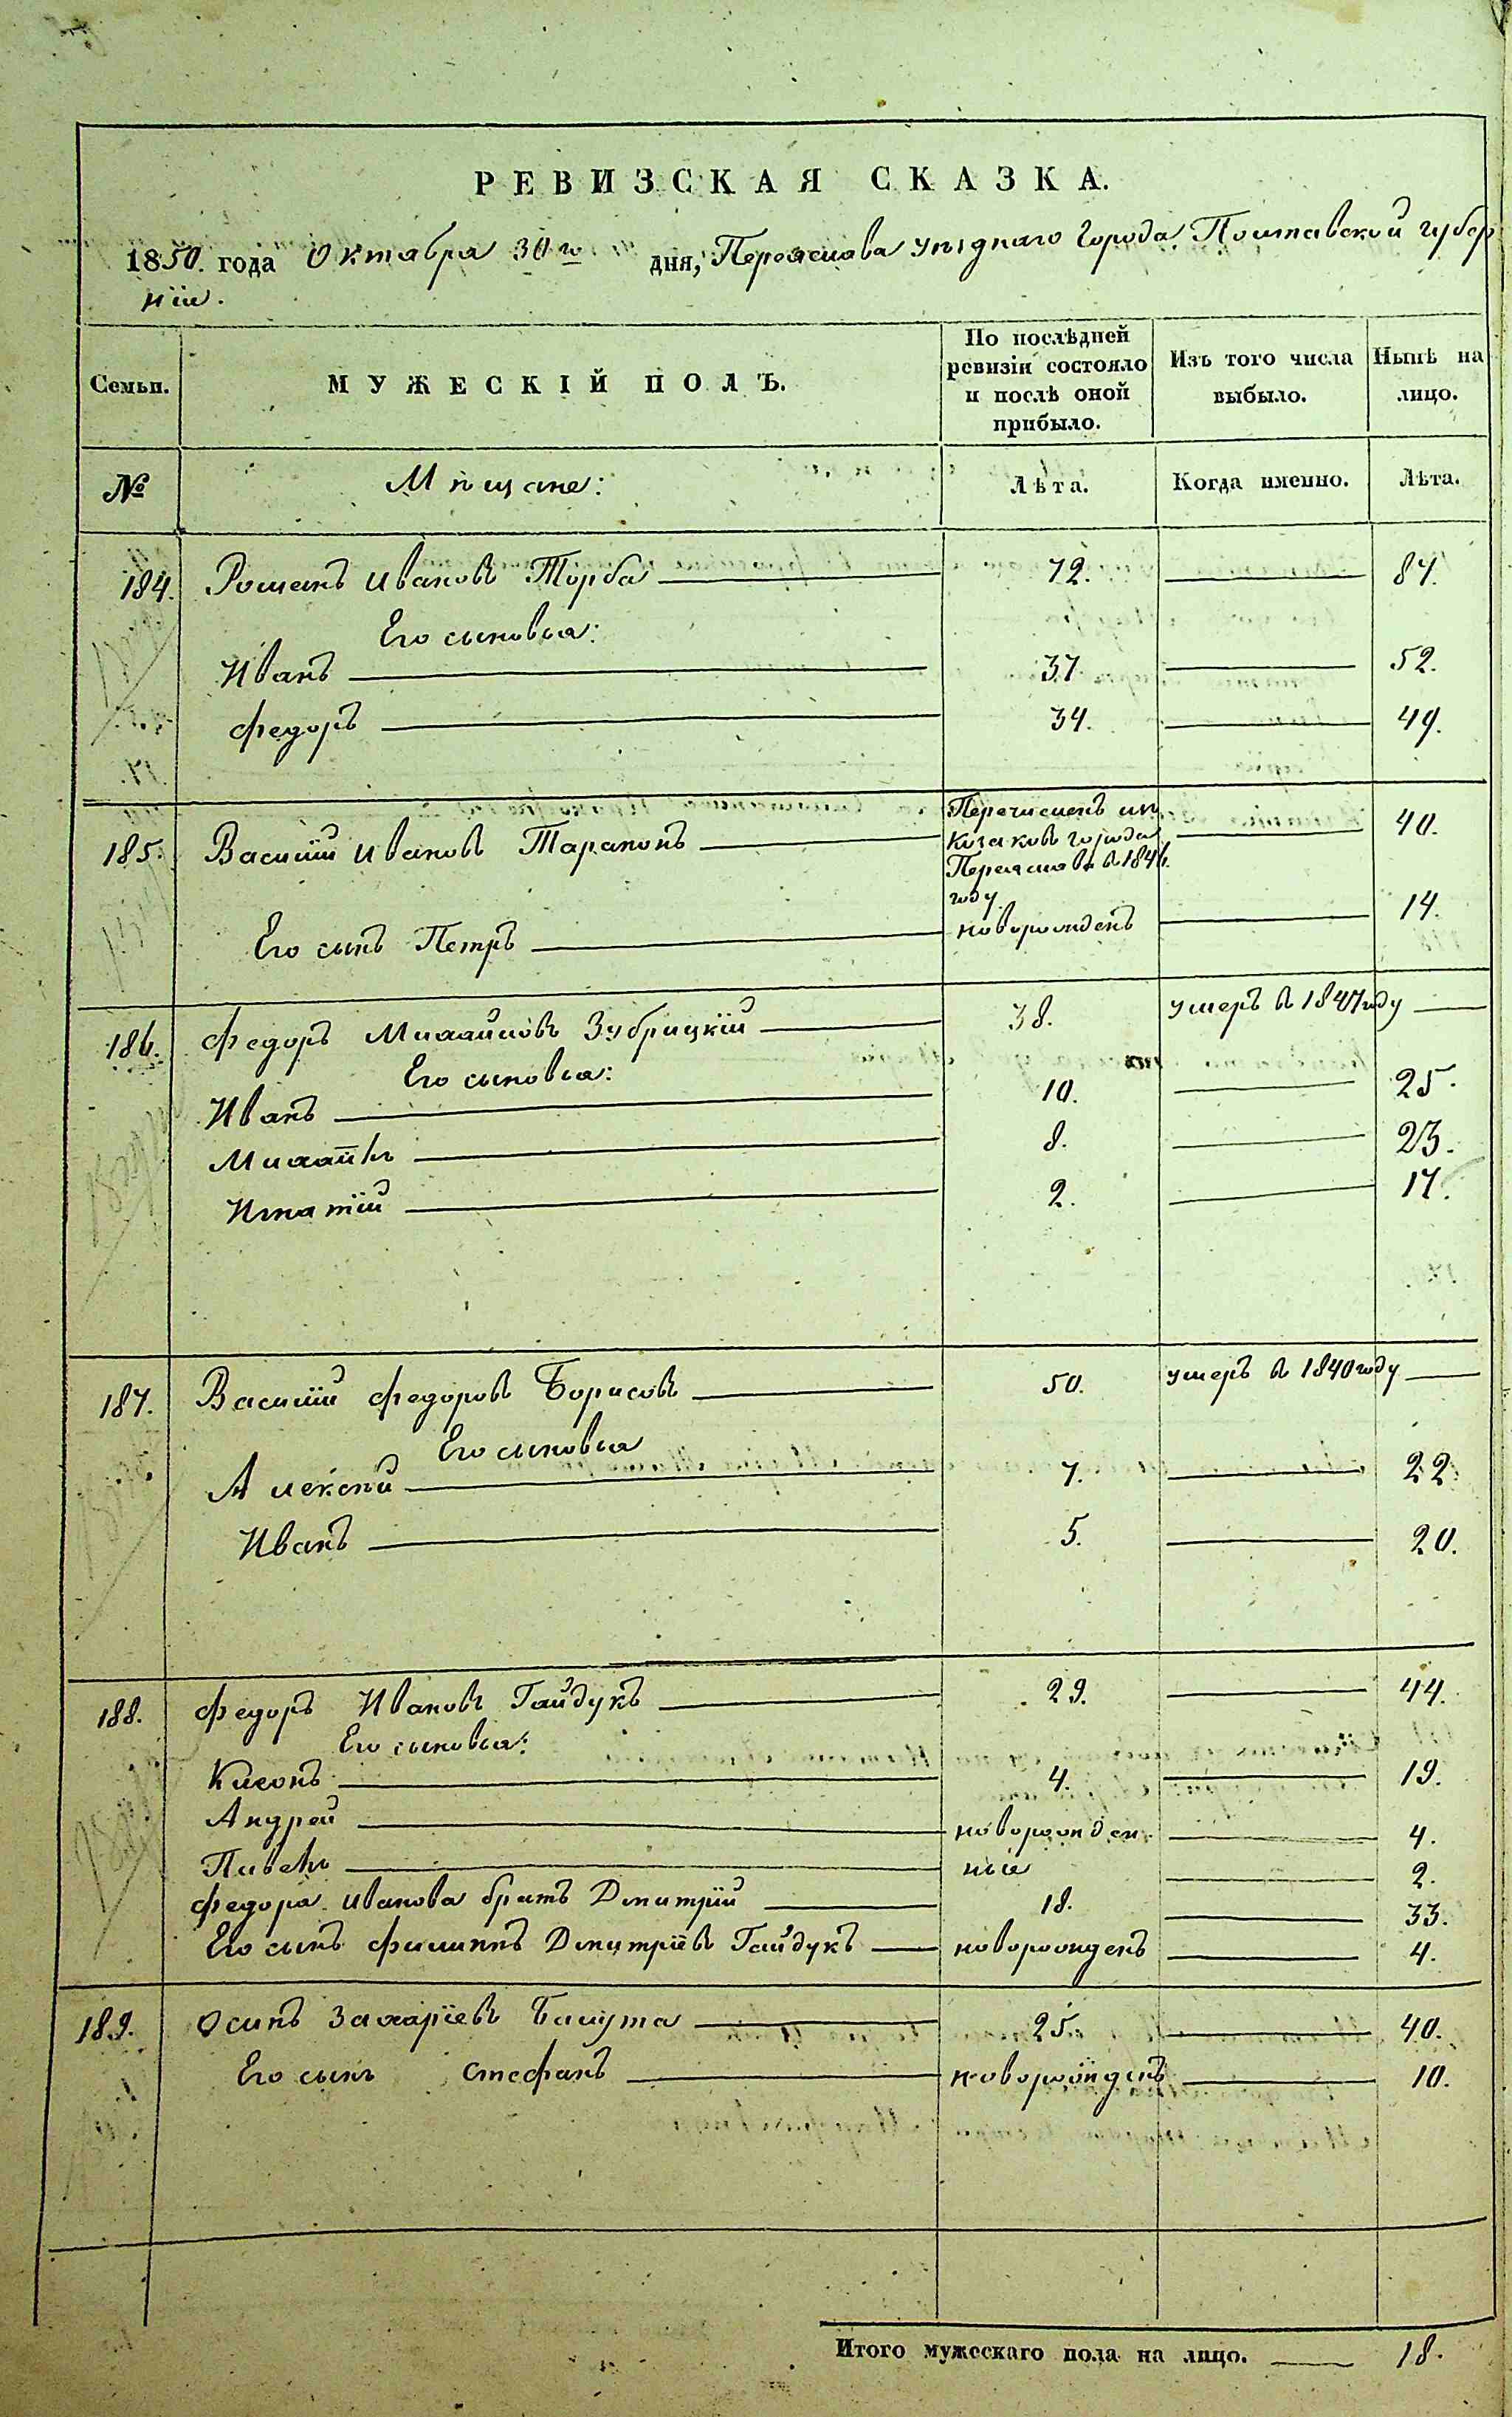 РЕВИЗСКАЯ СКАЗКА.
1850. года Октабра 30го дня, Переяслава уѣзднаго города Полтавской губер
нїи.
Семьи.
МУЖЕСКІЙ ПОЛЪ.
По послѣдней ревизіи состояло и послѣ оной прибыло.
Изъ того числа выбыло.
Нынѣ на лицо.
№
Мѣщане:
Лѣта.
Когда именно.
Лѣта.
184. Романъ Ивановъ Торба 72. 87.
Его сыновья:
Иванъ 37. 52.
Федоръ 34. 49.
185. Василїй Ивановъ Тарапонъ Перечисленъ изъ 40.
Козаковъ города
Переяслава въ 1846.
году
Его сынъ Петръ новорожденъ 14.
186. Федоръ Михайловъ Зубрицкїй 38. умеръ въ 1847 году
Его сыновья:
Иванъ 10. 25.
Михайла 8. 23.
Игнатїй 2. 17.
187. Василїй Федоровъ Борисовъ 50. умеръ въ 1840 году
Его сыновья
Алексѣй 7. 22.
Иванъ 5. 20.
188. Федоръ Ивановъ Гайдукъ 29. 44.
Его сыновья:
Клеонъ 4. 19.
Андрей новорожден- 4.
Павелъ ные 2.
Федора Иванова братъ Дмитрїй 18. 33.
Его сынъ Филиппъ Дмитрїевъ Гайдукъ новорожденъ 4.
189. Осипъ Захарїевъ Балута 25. 40.
Его сынъ Стефанъ новорожденъ 10.
Итого мужескаго пола на лицо. 18.